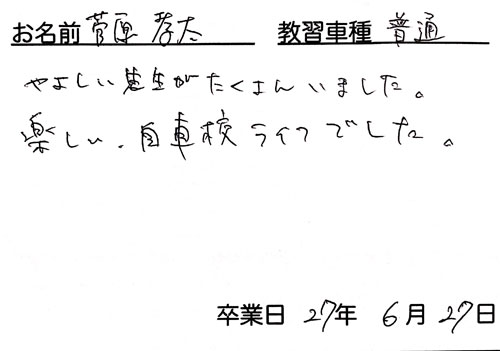 お名前 菅原 孝太 教習車種 普通
やさしい先生がたくさんいました。
楽しい、自車校ライフでした。
卒業日 27年 6月 27日